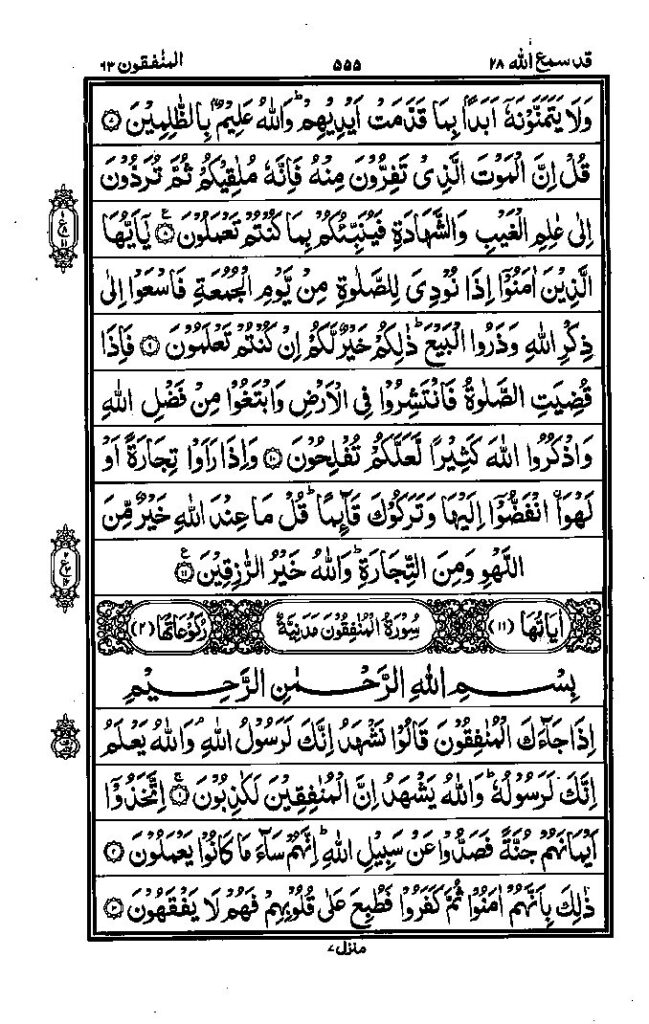 قد سمع الله ٢٨ ٥٥٥ المنٰفقون ٦٣
وَلَا يَتَمَنَّوْنَهٗۤ اَبَدًۢا بِمَا قَدَّمَتْ اَيْدِيْهِمْ ؕ وَاللّٰهُ عَلِيْمٌۢ بِالظّٰلِمِيْنَ ۝٧
قُلْ اِنَّ الْمَوْتَ الَّذِىْ تَفِرُّوْنَ مِنْهُ فَاِنَّهٗ مُلٰقِيْكُمْ ثُمَّ تُرَدُّوْنَ
اِلٰى عٰلِمِ الْغَيْبِ وَالشَّهَادَةِ فَيُنَبِّئُكُمْ بِمَا كُنْتُمْ تَعْمَلُوْنَ ۝٨ ع يٰۤاَيُّهَا
الَّذِيْنَ اٰمَنُوْۤا اِذَا نُوْدِىَ لِلصَّلٰوةِ مِنْ يَّوْمِ الْجُمُعَةِ فَاسْعَوْا اِلٰى
ذِكْرِ اللّٰهِ وَذَرُوا الْبَيْعَ ؕ ذٰلِكُمْ خَيْرٌ لَّكُمْ اِنْ كُنْتُمْ تَعْلَمُوْنَ ۝٩ فَاِذَا
قُضِيَتِ الصَّلٰوةُ فَانْتَشِرُوْا فِى الْاَرْضِ وَابْتَغُوْا مِنْ فَضْلِ اللّٰهِ
وَاذْكُرُوا اللّٰهَ كَثِيْرًا لَّعَلَّكُمْ تُفْلِحُوْنَ ۝١٠ وَاِذَا رَاَوْا تِجَارَةً اَوْ
لَهْوَا۟ انْفَضُّوْۤا اِلَيْهَا وَتَرَكُوْكَ قَآئِمًا ؕ قُلْ مَا عِنْدَ اللّٰهِ خَيْرٌ مِّنَ
اللَّهْوِ وَمِنَ التِّجَارَةِ ؕ وَاللّٰهُ خَيْرُ الرّٰزِقِيْنَ ۝١١ ع
اٰيَاتُهَا (١١) سُوْرَةُ الْمُنٰفِقُوْنَ مَدَنِيَّةٌ رُكُوْعَاتُهَا (٢)
بِسْمِ اللّٰهِ الرَّحْمٰنِ الرَّحِيْمِ
اِذَا جَآءَكَ الْمُنٰفِقُوْنَ قَالُوْا نَشْهَدُ اِنَّكَ لَرَسُوْلُ اللّٰهِ ۘ وَاللّٰهُ يَعْلَمُ
اِنَّكَ لَرَسُوْلُهٗ ؕ وَاللّٰهُ يَشْهَدُ اِنَّ الْمُنٰفِقِيْنَ لَكٰذِبُوْنَ ۝١ۚ اِتَّخَذُوْۤا
اَيْمَانَهُمْ جُنَّةً فَصَدُّوْا عَنْ سَبِيْلِ اللّٰهِ ؕ اِنَّهُمْ سَآءَ مَا كَانُوْا يَعْمَلُوْنَ ۝٢
ذٰلِكَ بِاَنَّهُمْ اٰمَنُوْا ثُمَّ كَفَرُوْا فَطُبِعَ عَلٰى قُلُوْبِهِمْ فَهُمْ لَا يَفْقَهُوْنَ ۝٣
منزل ٧